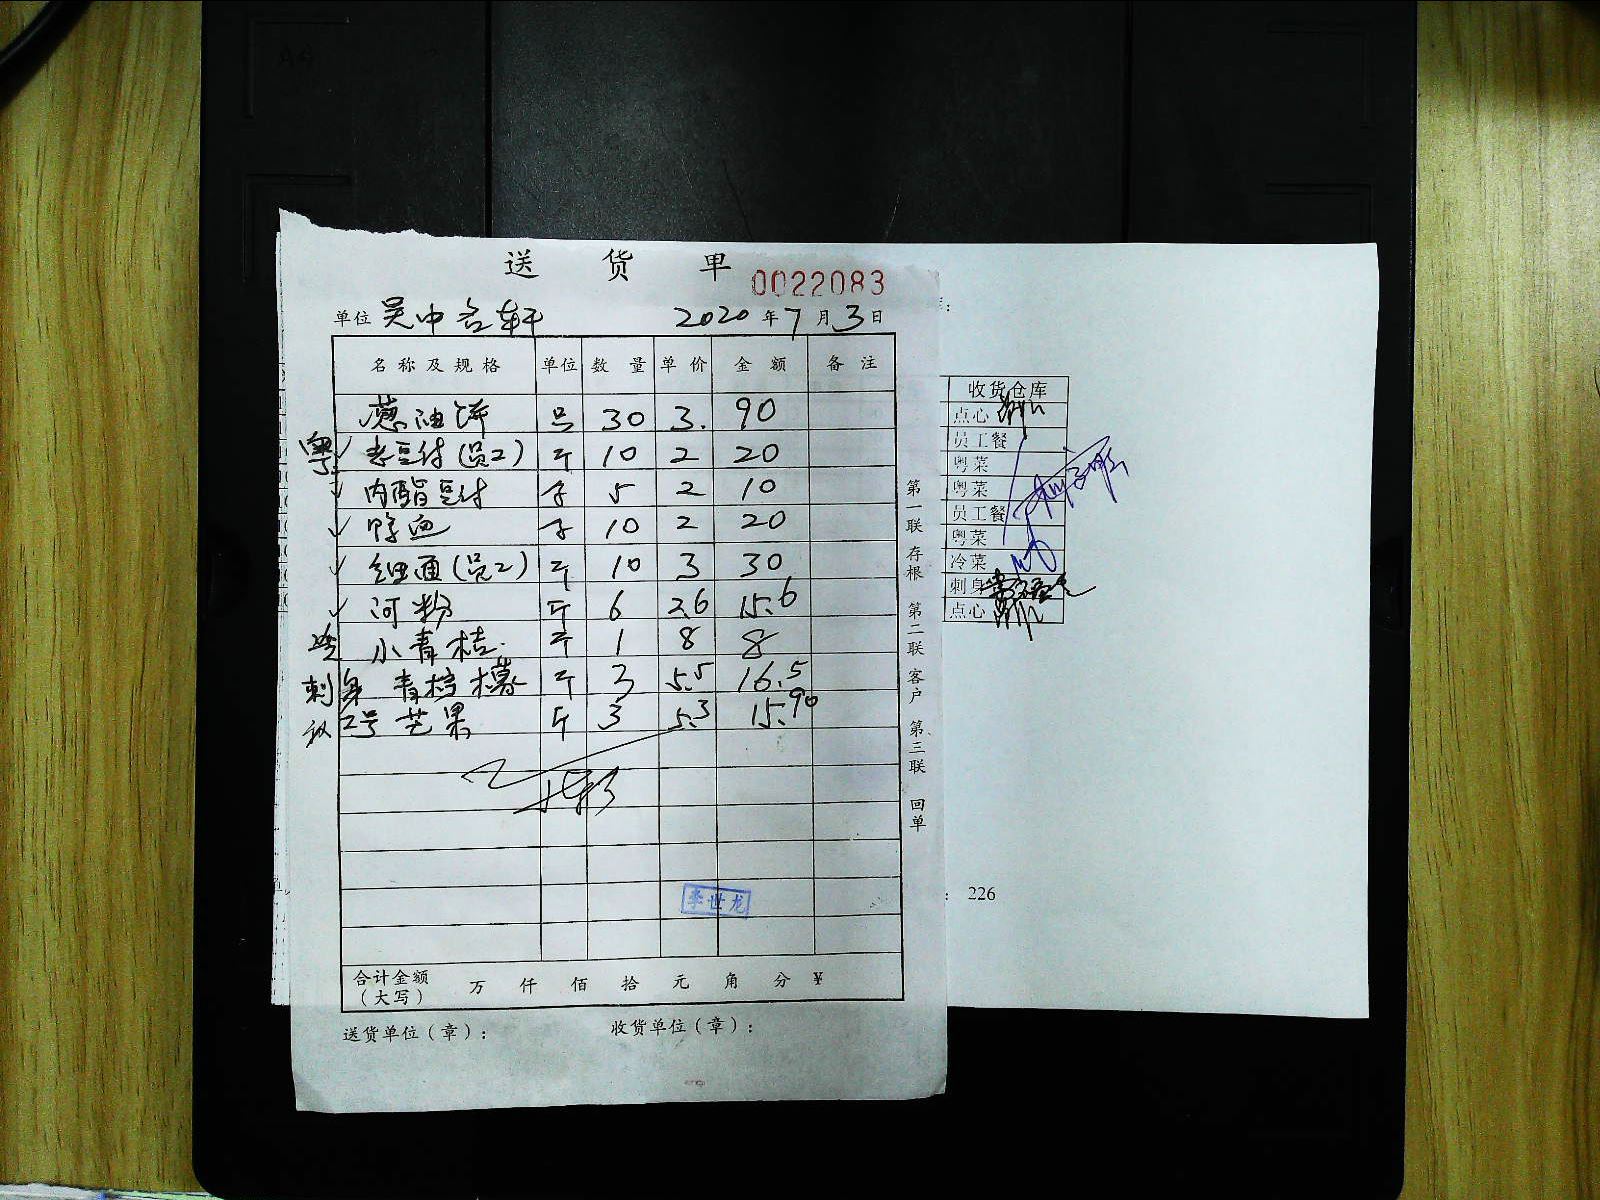 送货单
0022083
单位 吴中名轩 2020年7月3日
名称及规格 单位 数量 单价 金额 备注
葱油饼 只 30 3. 90
粤 ✓ 老豆付(员工) 斤 10 2 20
✓ 内酯豆付 子 5 2 10
✓ 鸭血 子 10 2 20
✓ 细面(员工) 斤 10 3 30
✓ 河粉 斤 6 2.6 15.6
小青桔 斤 1 8 8
刺身 青柠檬 斤 3 5.5 16.5
2号芒果 斤 3 5.3 15.90
李世龙
合计金额(大写) 万 仟 佰 拾 元 角 分 ¥
送货单位(章): 收货单位(章):
第一联 存根 第二联 客户 第三联 回单
收货仓库
点心
员工餐
粤菜
粤菜
员工餐
粤菜
冷菜
刺身
点心
: 226